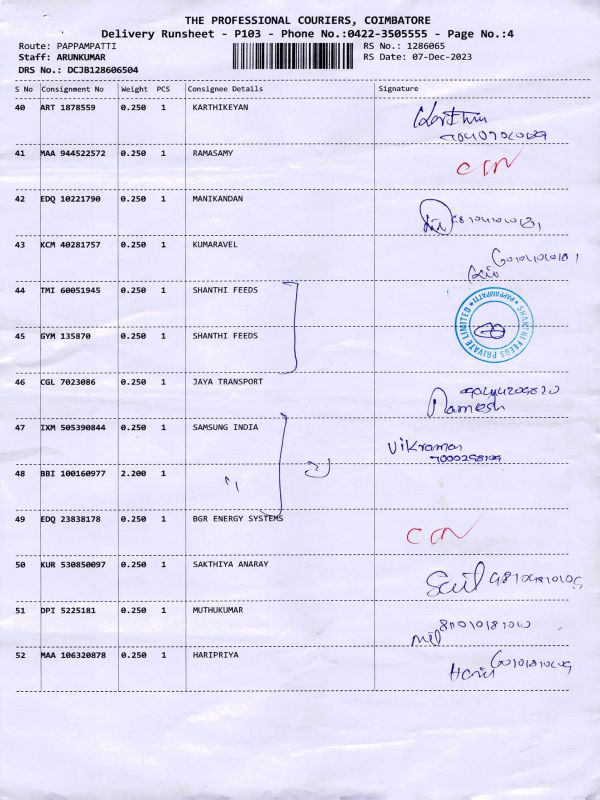 THE PROFESSIONAL COURIERS, COIMBATORE
Delivery Runsheet - P103 - Phone No.:0422-3505555 - Page No.:4
Route: PAPPAMPATTI RS No.: 1286065
Staff: ARUNKUMAR RS Date: 07-Dec-2023
DRS No.: DCJB128606504
S No Consignment No Weight PCS Consignee Details Signature
40 ART 1878559 0.250 1 KARTHIKEYAN
41 MAA 944522572 0.250 1 RAMASAMY
42 EDQ 10221790 0.250 1 MANIKANDAN
43 KCM 40281757 0.250 1 KUMARAVEL
44 TMI 60051945 0.250 1 SHANTHI FEEDS
SHANTHI FEEDS PRIVATE LIMITED PAPPAMPATTI
45 GYM 135870 0.250 1 SHANTHI FEEDS
46 CGL 7023086 0.250 1 JAYA TRANSPORT
Ramesh
47 IXM 505390844 0.250 1 SAMSUNG INDIA
Vikraman
48 BBI 100160977 2.200 1 "
49 EDQ 23838178 0.250 1 BGR ENERGY SYSTEMS
50 KUR 530850097 0.250 1 SAKTHIYA ANARAY
51 DPI 5225181 0.250 1 MUTHUKUMAR
52 MAA 106320878 0.250 1 HARIPRIYA